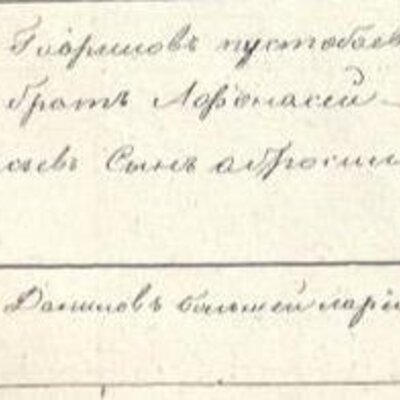 Гавриловъ пустобаев
братъ Афонасей
сьевъ Сынъ абросим
Даниловъ большей лари